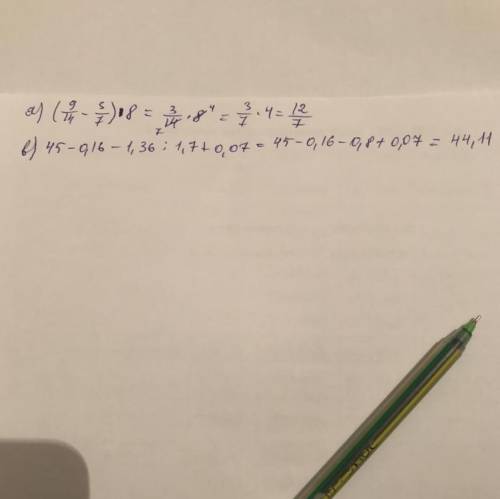 а) (9/14 - 3/7) • 8 = 3/14 7 • 8 4 = 3/7 • 4 = 12/7
в) 45 - 0,16 - 1,36 : 1,7 + 0,07 = 45 - 0,16 - 0,8 + 0,07 = 44,11